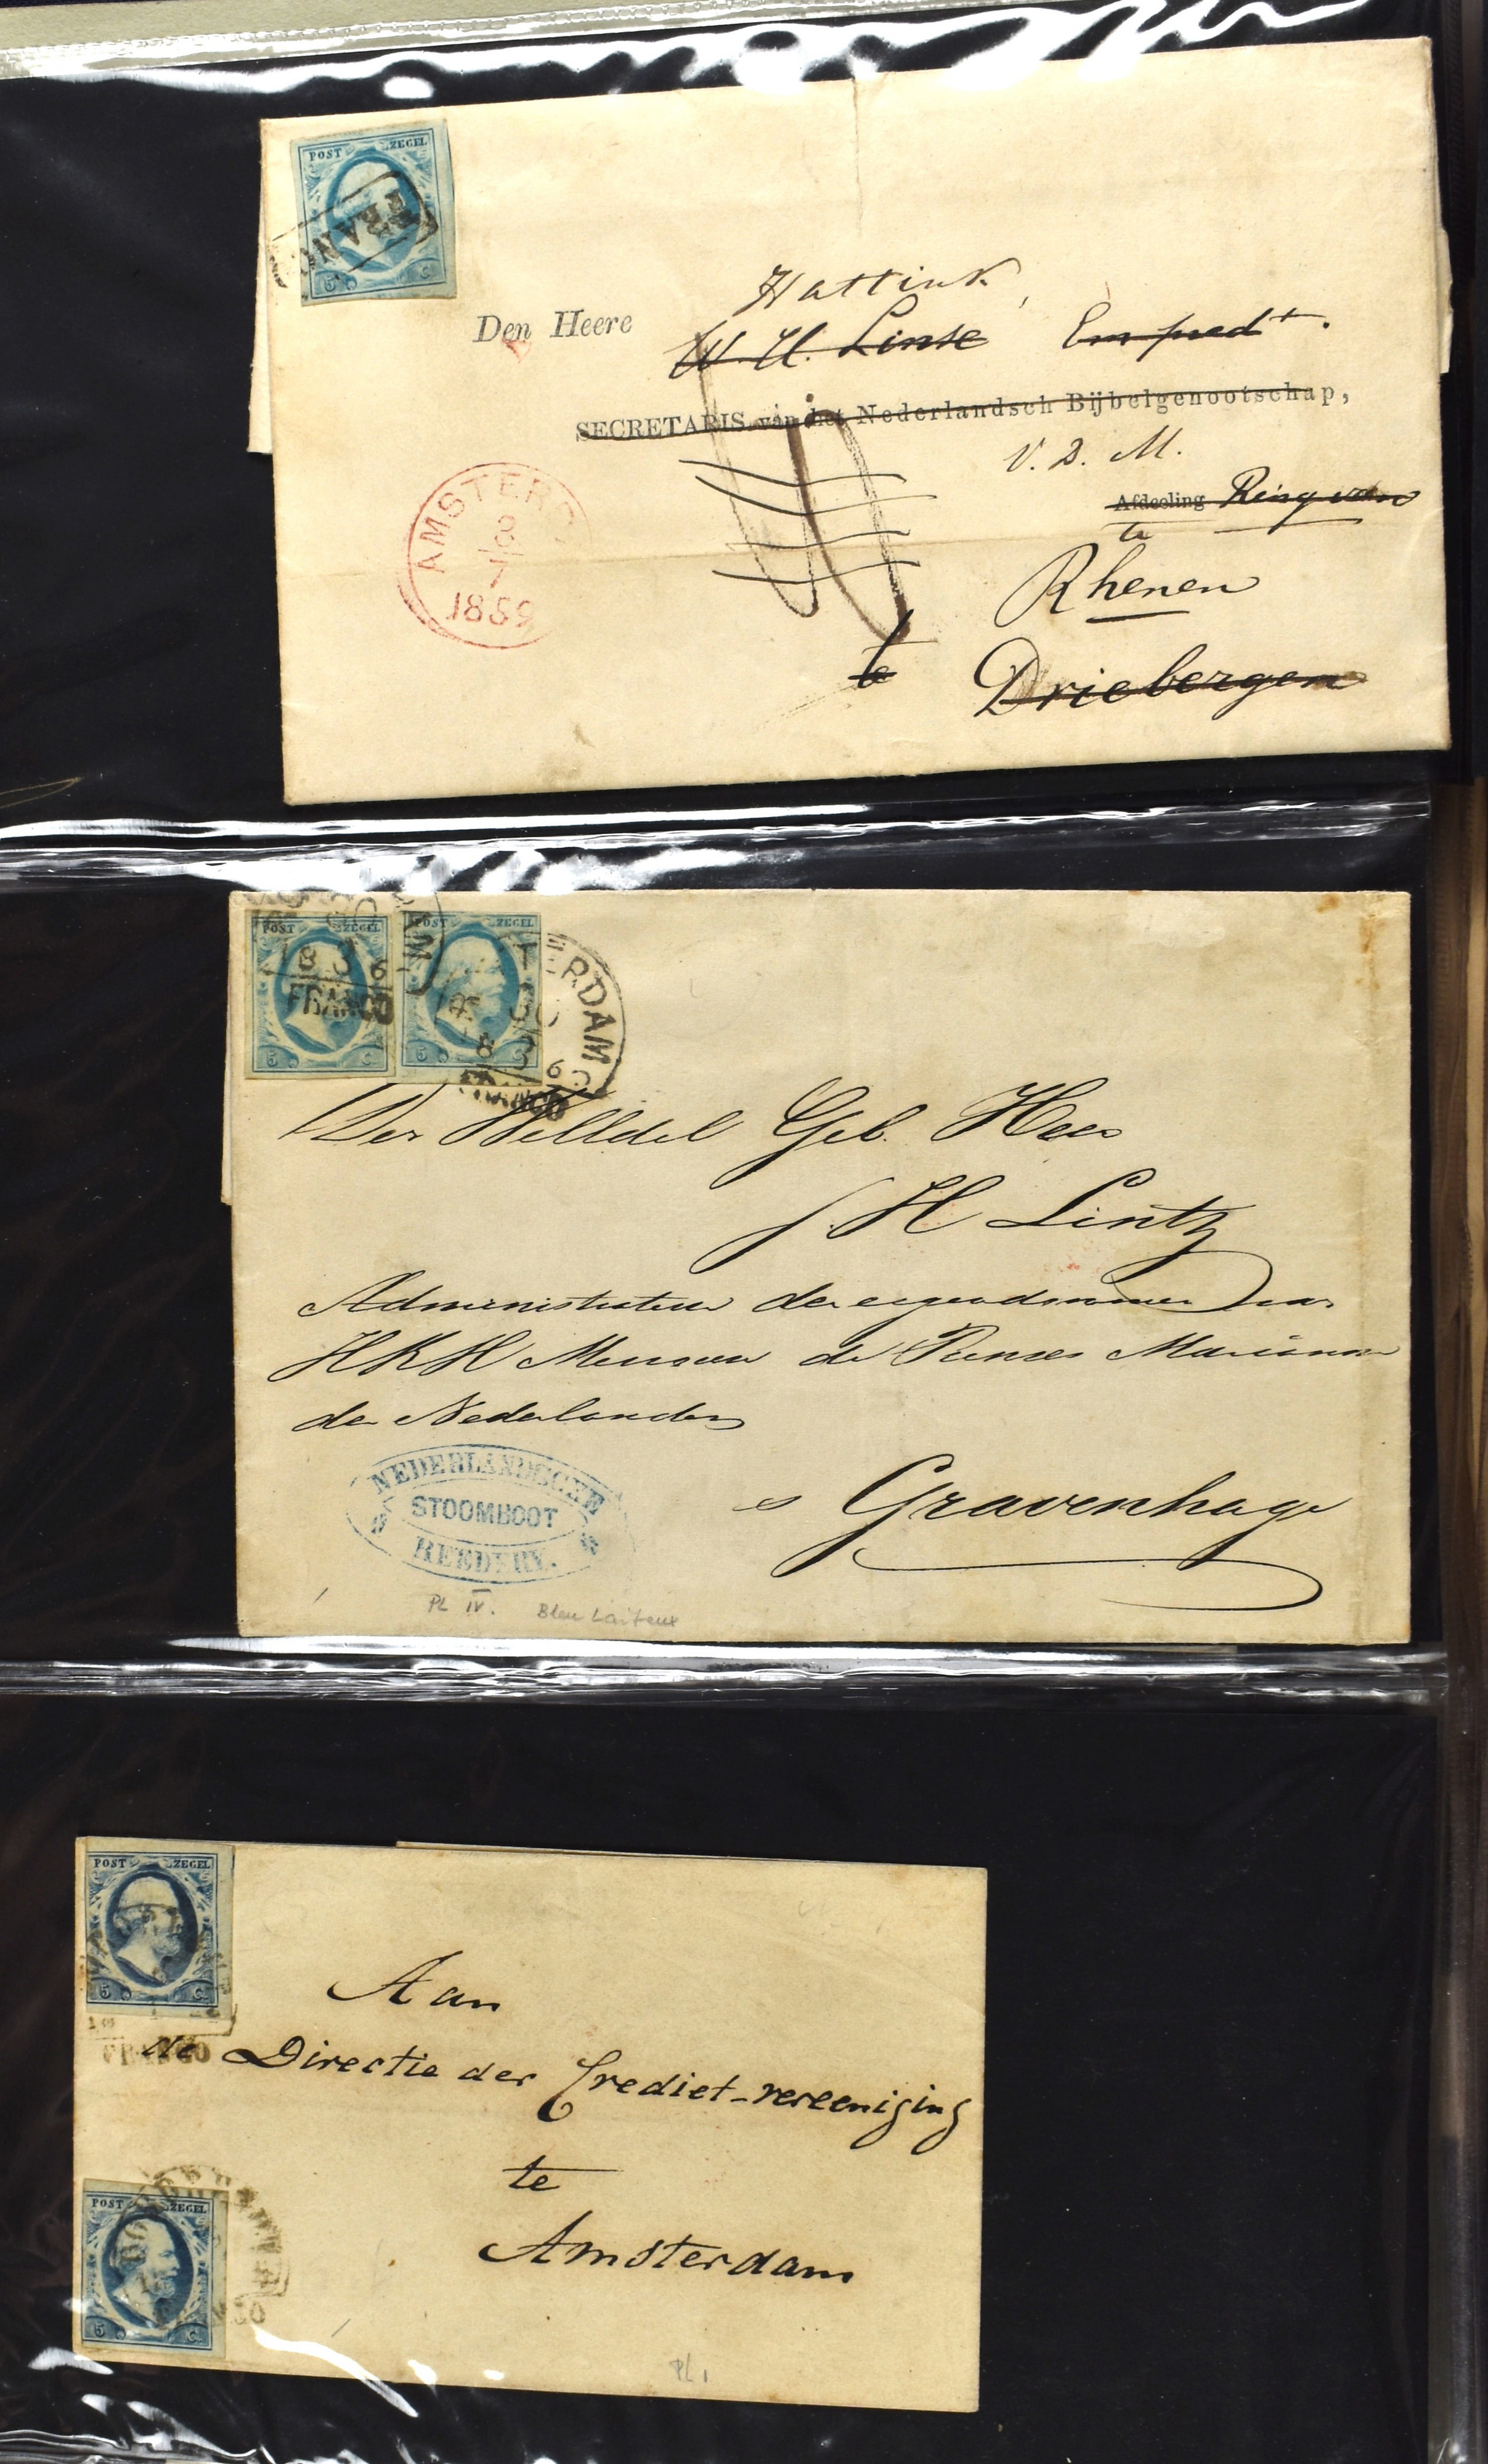 POST ZEGEL
FRANCO
5 C.
Hattink,
Den Heere W. H. Linse Em pred.t.
SECRETARIS van het Nederlandsch Bijbelgenootschap,
V. D. M.
Afdeeling
te
AMSTERD
8
1859
Rhenen
te Driebergen
POST ZEGEL
POST ZEGEL
ERDAM
FRANCO
5 C
5 C
FRANCO
Den Geb. Heer
H Lintz
Administrateur der van
HKH Mevrouw de Prinses Marianne
der Nederlanden
NEDERLANDSCHE
STOOMBOOT
REEDERY.
s Gravenhage
PL IV. Bleu Laiteux
POST ZEGEL
5 C.
FRANCO
Aan
de Directie der Crediet-vereeniging
te
POST ZEGEL
Amsterdam
5 C.
PL 1